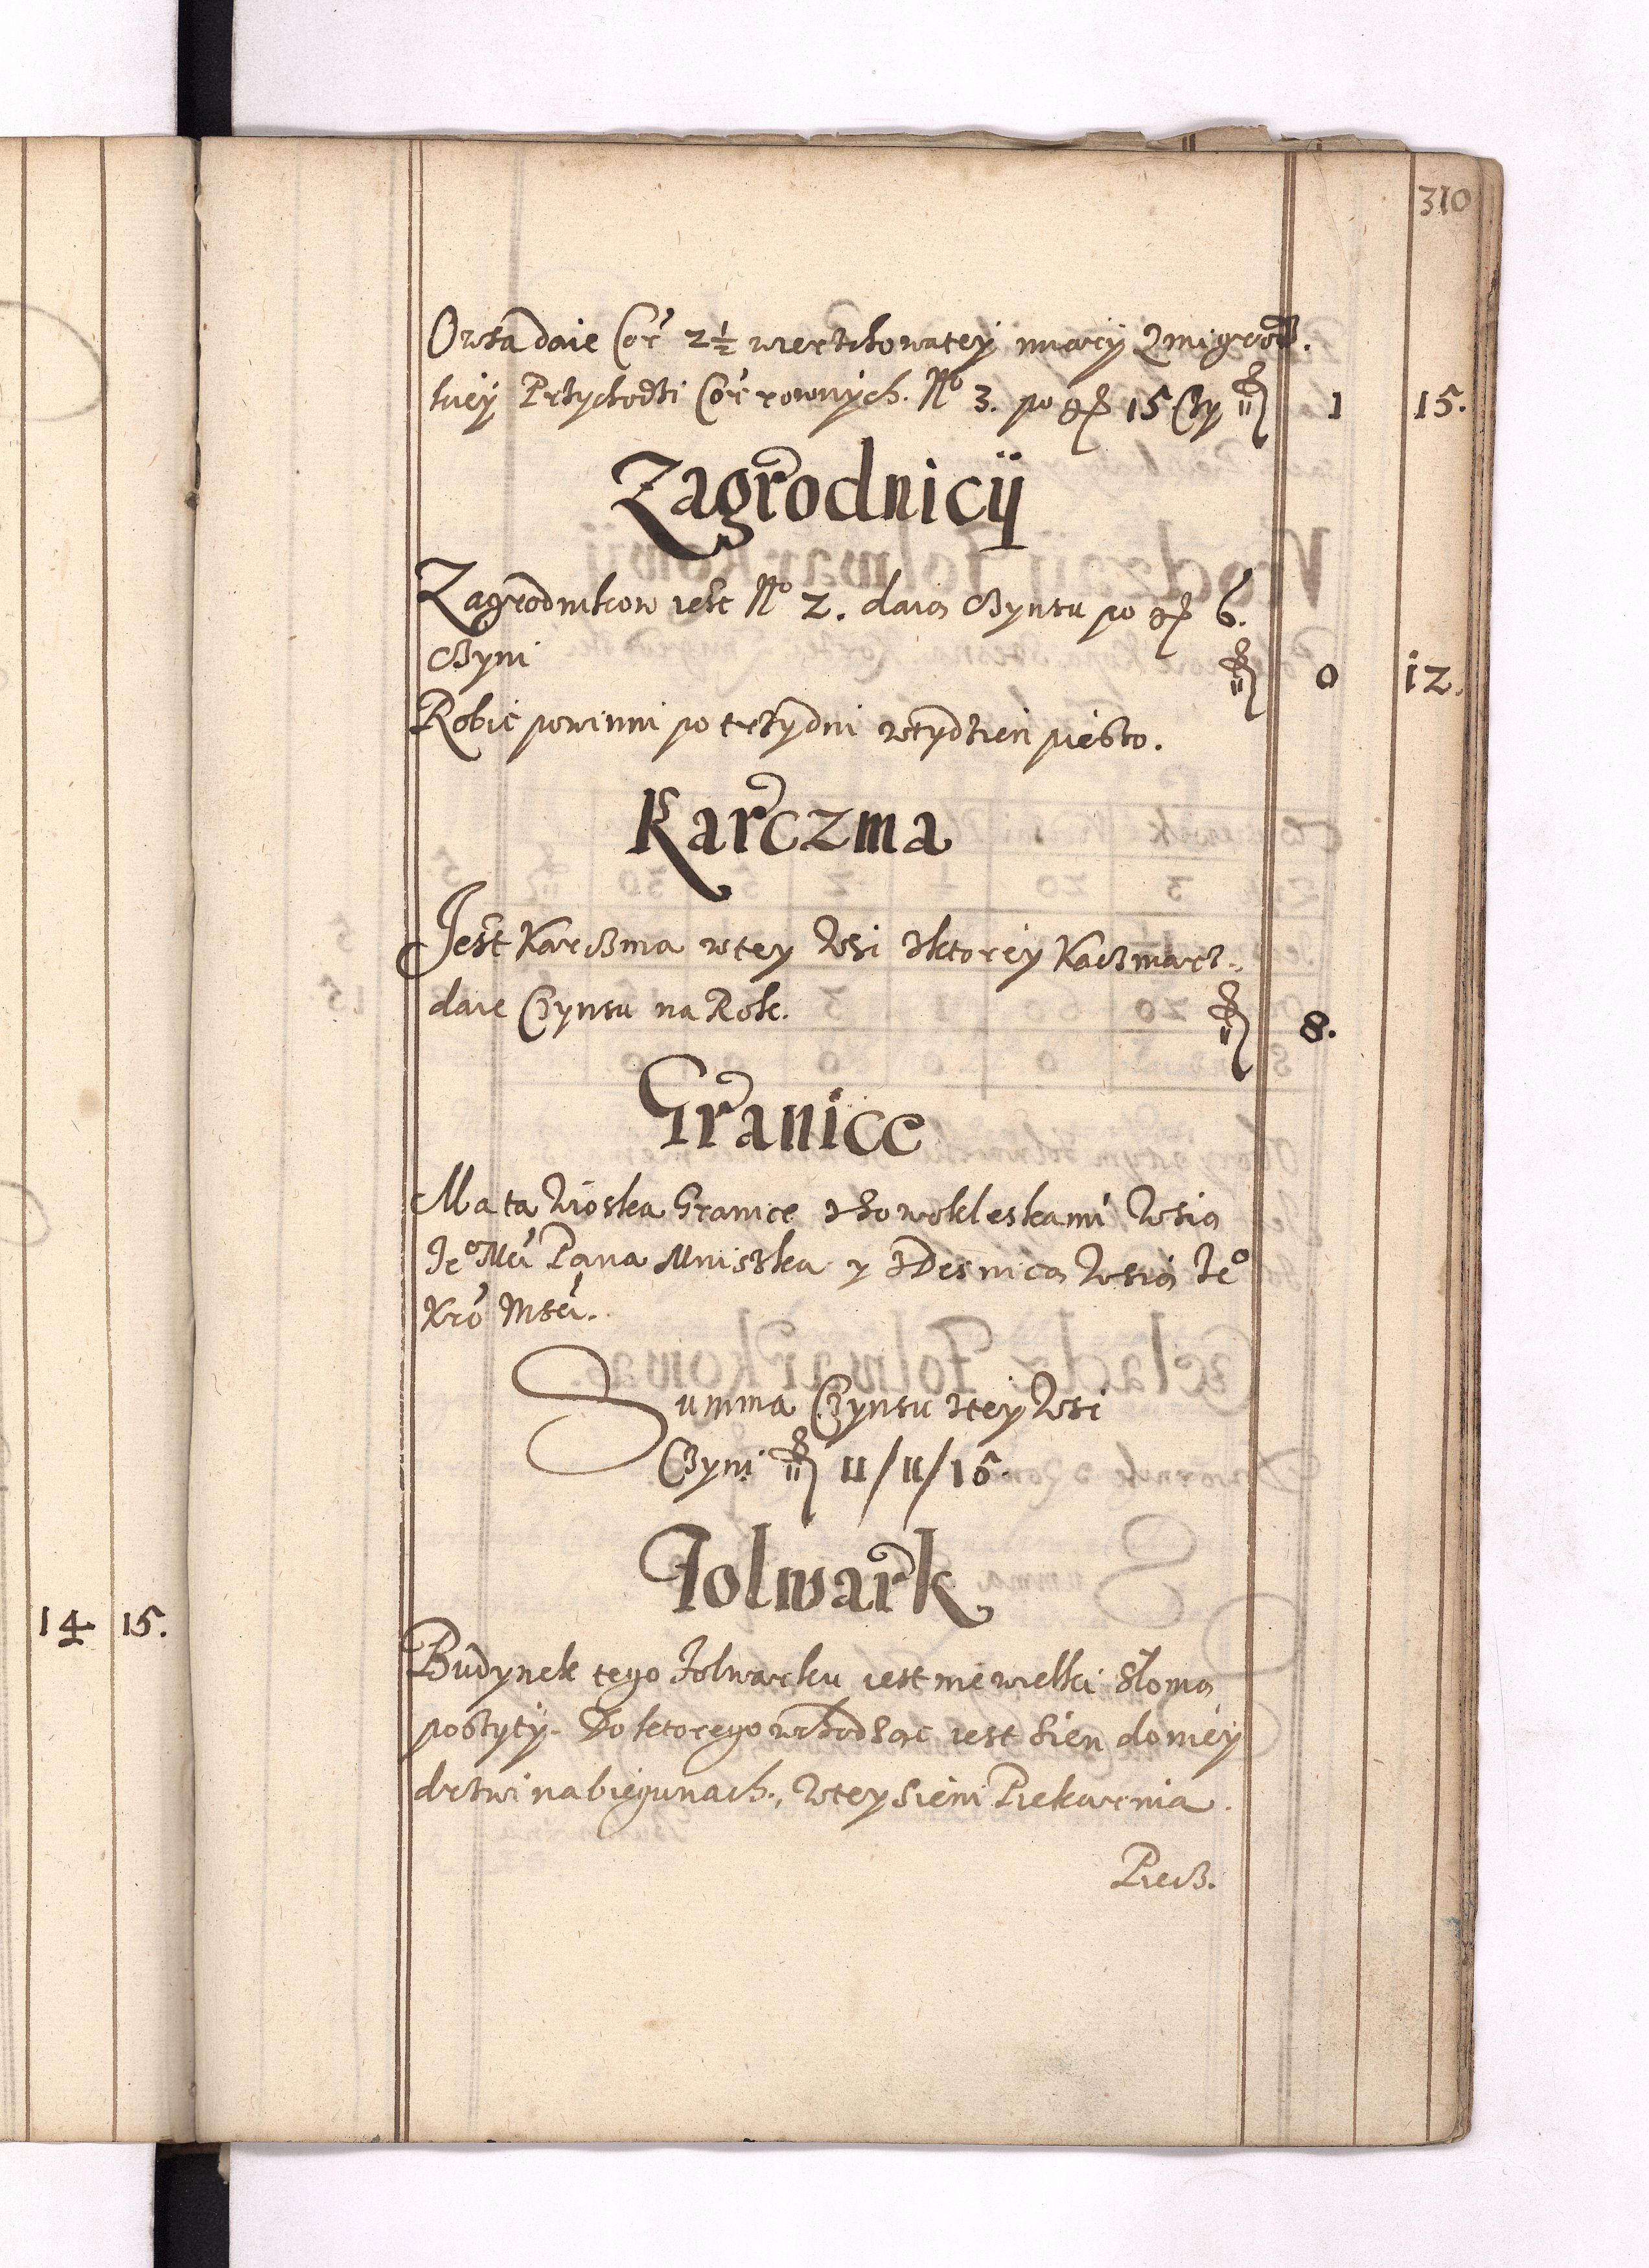 310
Owsa daie Cor 2½ wierzchowatey miary Zmigrod.
skiey Przychodzi Cor rownych. No 3. po g 15 Czy f 1 15.
Zagrodnicÿ
Zagrodnikow iest No 2. daią Czynsu po g 6.
Czyni f 0 12.
Robić powinni po trzy dni w tydzien pieszo.
Karczma
Jest Karczma w tey Wsi z ktorey Kaczmarz
daie Czynsu na Rok. f 8.
Granice
Ma ta Wioska Granice z Sowokleskami Wsią
Jeo Mci Pana Mniszka y z Desnicą Wsią Jeo
Kro Msci.
Summa Czynsu z tey Wsi
Czyni f 11/11/15.
Folwark
Budynek tego Folwarku iest niewielki słomą
poszyty. Do ktorego wchodząc iest Sien do niey
drzwi na biegunach., W tey sieni Piekarnia.
Piecz.
14 15.